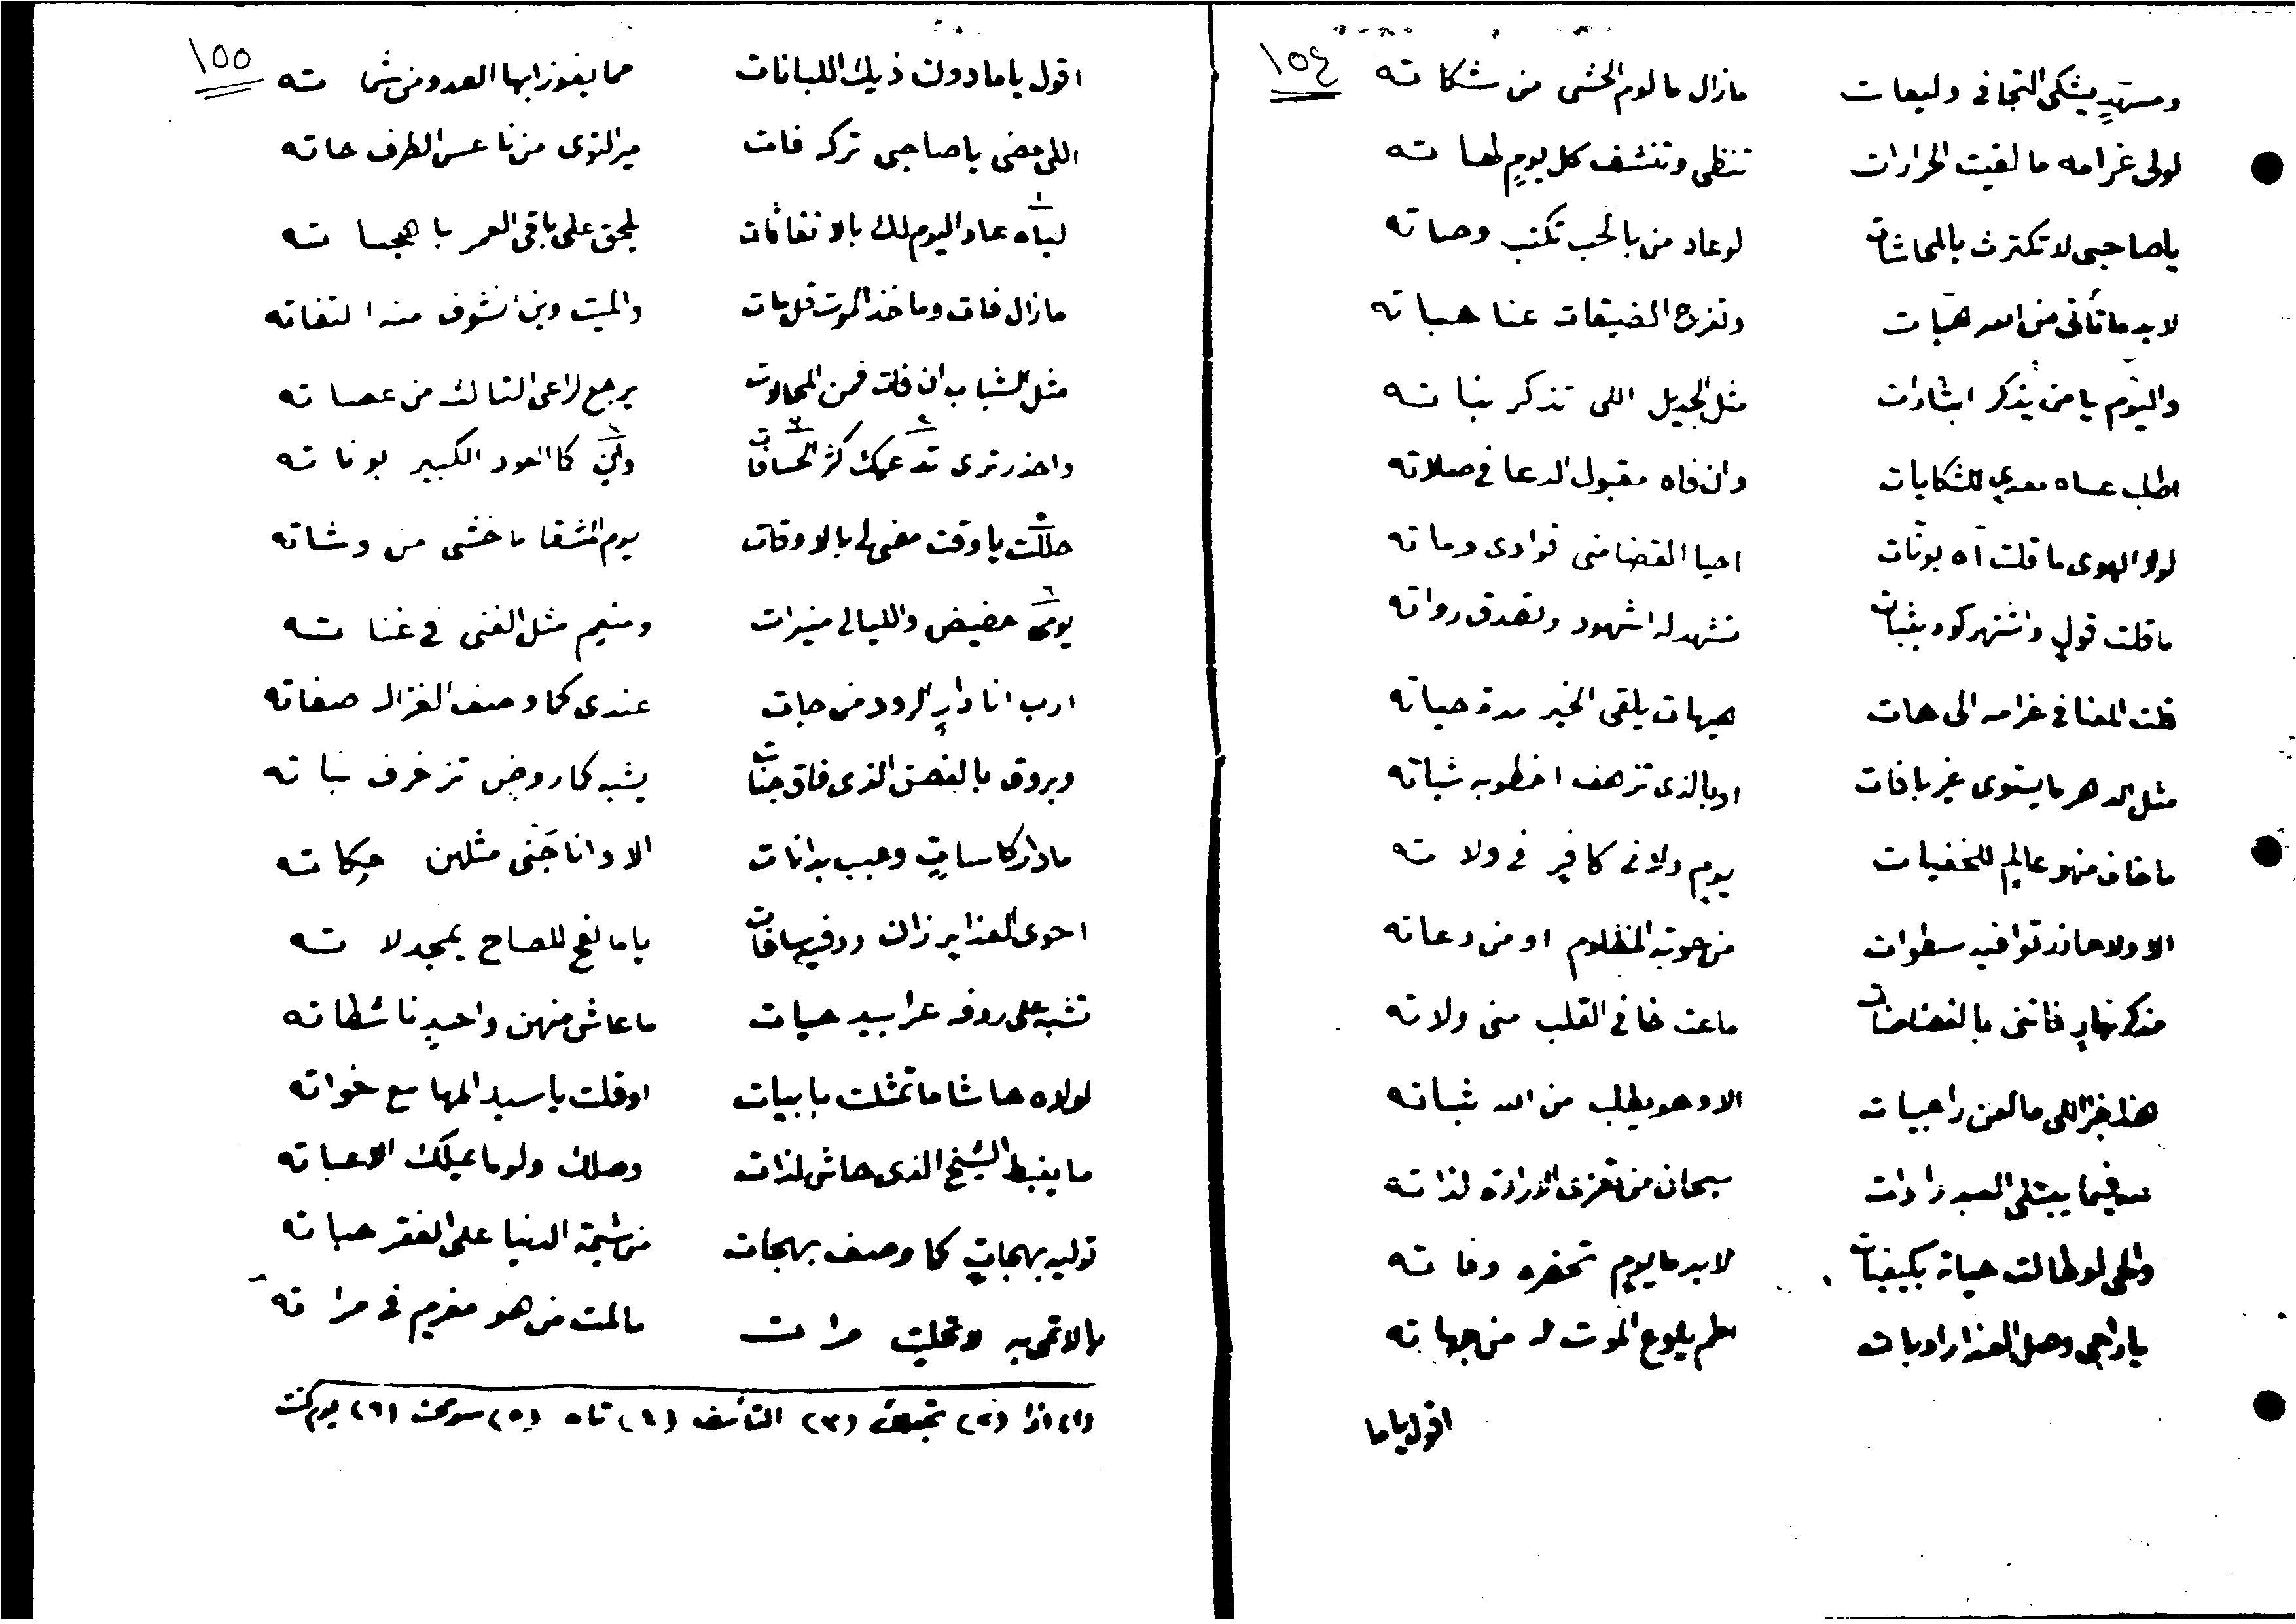 ١٥٤
ومسهدٍ يشكي التجافي وليعات مازال مالوم الحشى من شكاته
لولى غرامه مالقيت الحرارات تنظي وتنشف كل يومٍ لهاته
ياصاحبي لا تكترث بالمحاشات لوعاد من بالحب تكتب وصاته
لابد ما تأتي من الله هبّات وتفرج الضيقات عنا هباته
واليوم يا من يذكر اشارات مثل الجديل اللي تذكر بناته
اطلب عساه معدي للشكايات وان فاه مقبول الدعا في صلاته
لولا الهوى ما قلت آه بونّات احيا القضا مني فوادي وماته
ما قلت قولٍ واشتهر كود بثبات تشهد له اشهود وتصدق رواته
قلت المعنا في غرامه الى هات هيهات يلقى الخير مدة حياته
مثل الدهر ما يستوى غير بافات او بالذي تزهف اخطوبه شباته
ما خاف منهو عالمٍ للخفيات يومٍ ولاني كافرٍ في ولاته
الا ولا حاند توافيه سطوات من حوبة المظلوم او من دعاته
منكر نهارٍ فاتني بالغضاضات ما عنت خافي القلب مني ولاته
هذا خبر اللي مالهن راحيات الا وهو يطلب من الله ثباته
لله فيما يبتلي العبد رادات سبحان من تعزى الارادة لذاته
والحي لو طالت حياة بكيفيات لابد ما يومٍ تحضره وفاته
ياراجي وصل العذارا وبات اعلم يلوع الموت له من جهاته
اقول ياما
١٥٥
اقول ياما دون ذيك اللبانات مما يفوز ابها العدو من شماته
اللي مضى ياصاحبي تركه فات مير التوى من ناعس الطرف حاته
لياه عاد اليوم لك بالانفاتات يلحق على باقي العمر باهجساته
مازال فات وماخذ الموت قل مات والميت وين انشوف منه التفاته
مثل الشباب ان فات فمن المحالات يرجع لراعى التالك من عصاته
واحذر ترى تدعيك كثر الحسافات ولّى كالعود الكبير بوناته
حللت ياوقت مضى لي بالاوقات يوم الشقا ما خشي من وشاته
يومى خضيض والليالي منيرات ومنعم مثل الغنى في غناته
ارب انا دارٍ الرود من جات عندي كما وصف الغزال صفاته
وبروق بالغصن الذي فاق جنات يشبه كما روضٍ تزخرف نباته
مادار كاساتٍ وحبب بدانات الا وانا جَنى مثلهن حكاته
احوى العذاير زان ردفيه سافات ياما نفح للصاح بمجدلاته
تشبه على ردفه عرابيد حيات ما عاش منهن واحدٍ ناشطاته
لولاه حاشا ما تمثلت بابيات اوقلت ياسيد المها مع خواته
ما يغبط الشيخ الذي حاش لذات وصلك ولو ما يملك الا عباته
توليه بهجاتٍ كما وصف بهجات من شيمة الدنيا على الفقر حباته
يالايمي به لا تحليت مرات مالمت من هو مغرم في مراته
(١) اذا (٢) تجيك (٣) التأسف (٤) تاه (٥) سومحت (٦) يوم كنت